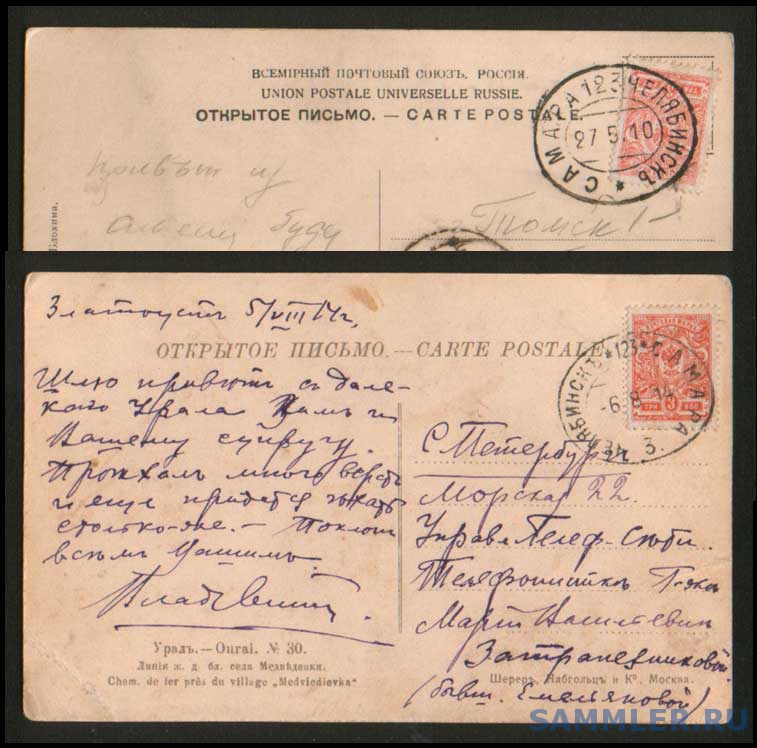 ВСЕМІРНЫЙ ПОЧТОВЫЙ СОЮЗЪ. РОССІЯ.
UNION POSTALE UNIVERSELLE RUSSIE.
ОТКРЫТОЕ ПИСЬМО. — CARTE POSTALE.
САМАРА 123 ЧЕЛЯБИНСКЪ
27 5 10
Томск
Златоустъ 5/VIII 14 г.
ОТКРЫТОЕ ПИСЬМО.—CARTE POSTALE
ЧЕЛЯБИНСКЪ * 123 * САМАРА
-6 8 14
3
ТРИ 3 КОП
Шлю привѣтъ съ дале-
каго Урала Вамъ и
Вашему супругу.
Проѣхалъ много верстъ
и еще придется ѣхать
столько-же. — Поклонъ
всѣмъ Вашимъ.
С Петербургъ
Морская 22.
Управл Телеф-Сѣти
Телефонисткѣ
Затрапезниковой
(бывш. Емельяновой)
Уралъ.—Oural. № 30.
Линія ж. д. бл. села Медвѣдевки.
Chem. de fer près du village „Medviedievka“
Шереръ, Набгольцъ и Кº. Москва.
SAMMLER.RU